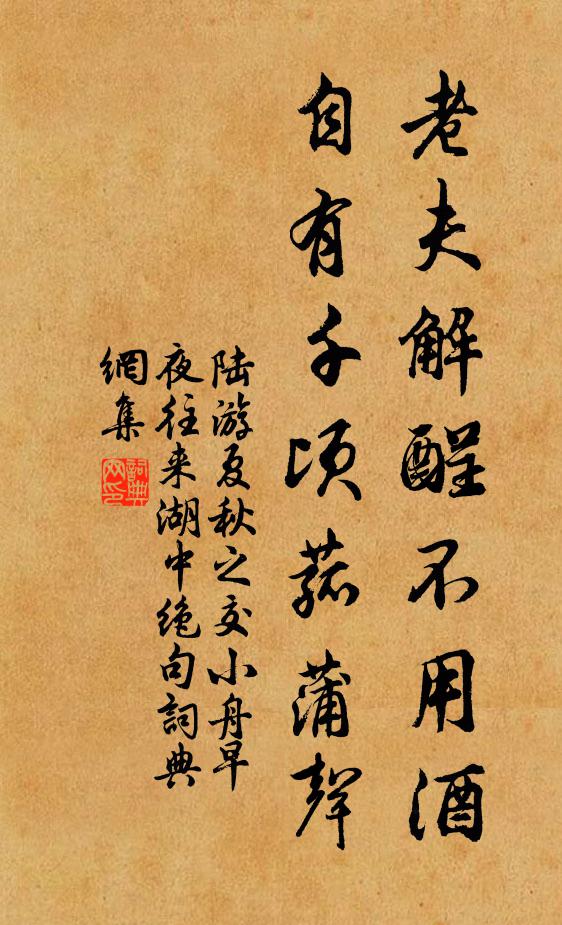 老夫解酲不用酒
自有千頃菰蒲聲
陸游夏秋之交小舟早
夜往来湖中绝句詞典
網集
詞典
网印